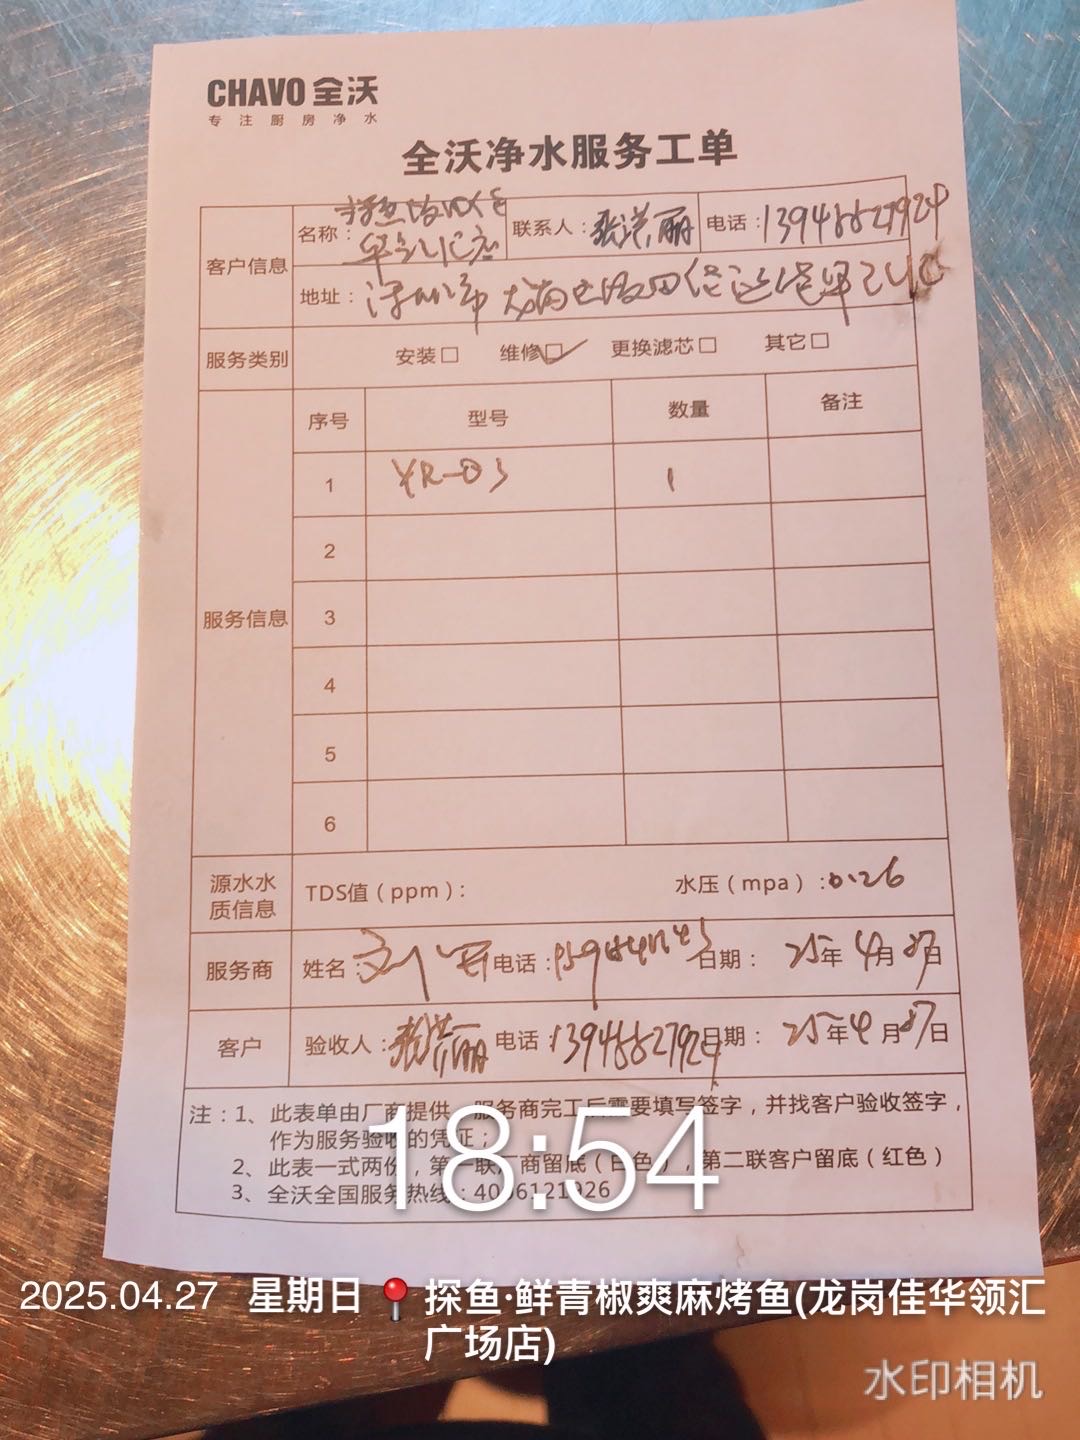 CHAVO 全沃
专注厨房净水
全沃净水服务工单
客户信息 名称： 联系人：张洪丽 电话：13948827924
地址：深圳市龙岗区坂田
服务类别 安装□ 维修□✓ 更换滤芯□ 其它□
服务信息 序号 型号 数量 备注
1 YR-03 1
2
3
4
5
6
源水水质信息 TDS值（ppm）： 水压（mpa）：0.26
服务商 姓名：刘 电话： 日期：25年4月27日
客户 验收人：张洪丽 电话：13948827924 日期：25年4月27日
注：1、此表单由厂商提供，服务商完工后需要填写签字，并找客户验收签字，
作为服务验收的凭证；
2、此表一式两份，第一联厂商留底（白色），第二联客户留底（红色）
3、全沃全国服务热线：4006121926
18:54
2025.04.27 星期日 探鱼·鲜青椒爽麻烤鱼(龙岗佳华领汇
广场店)
水印相机